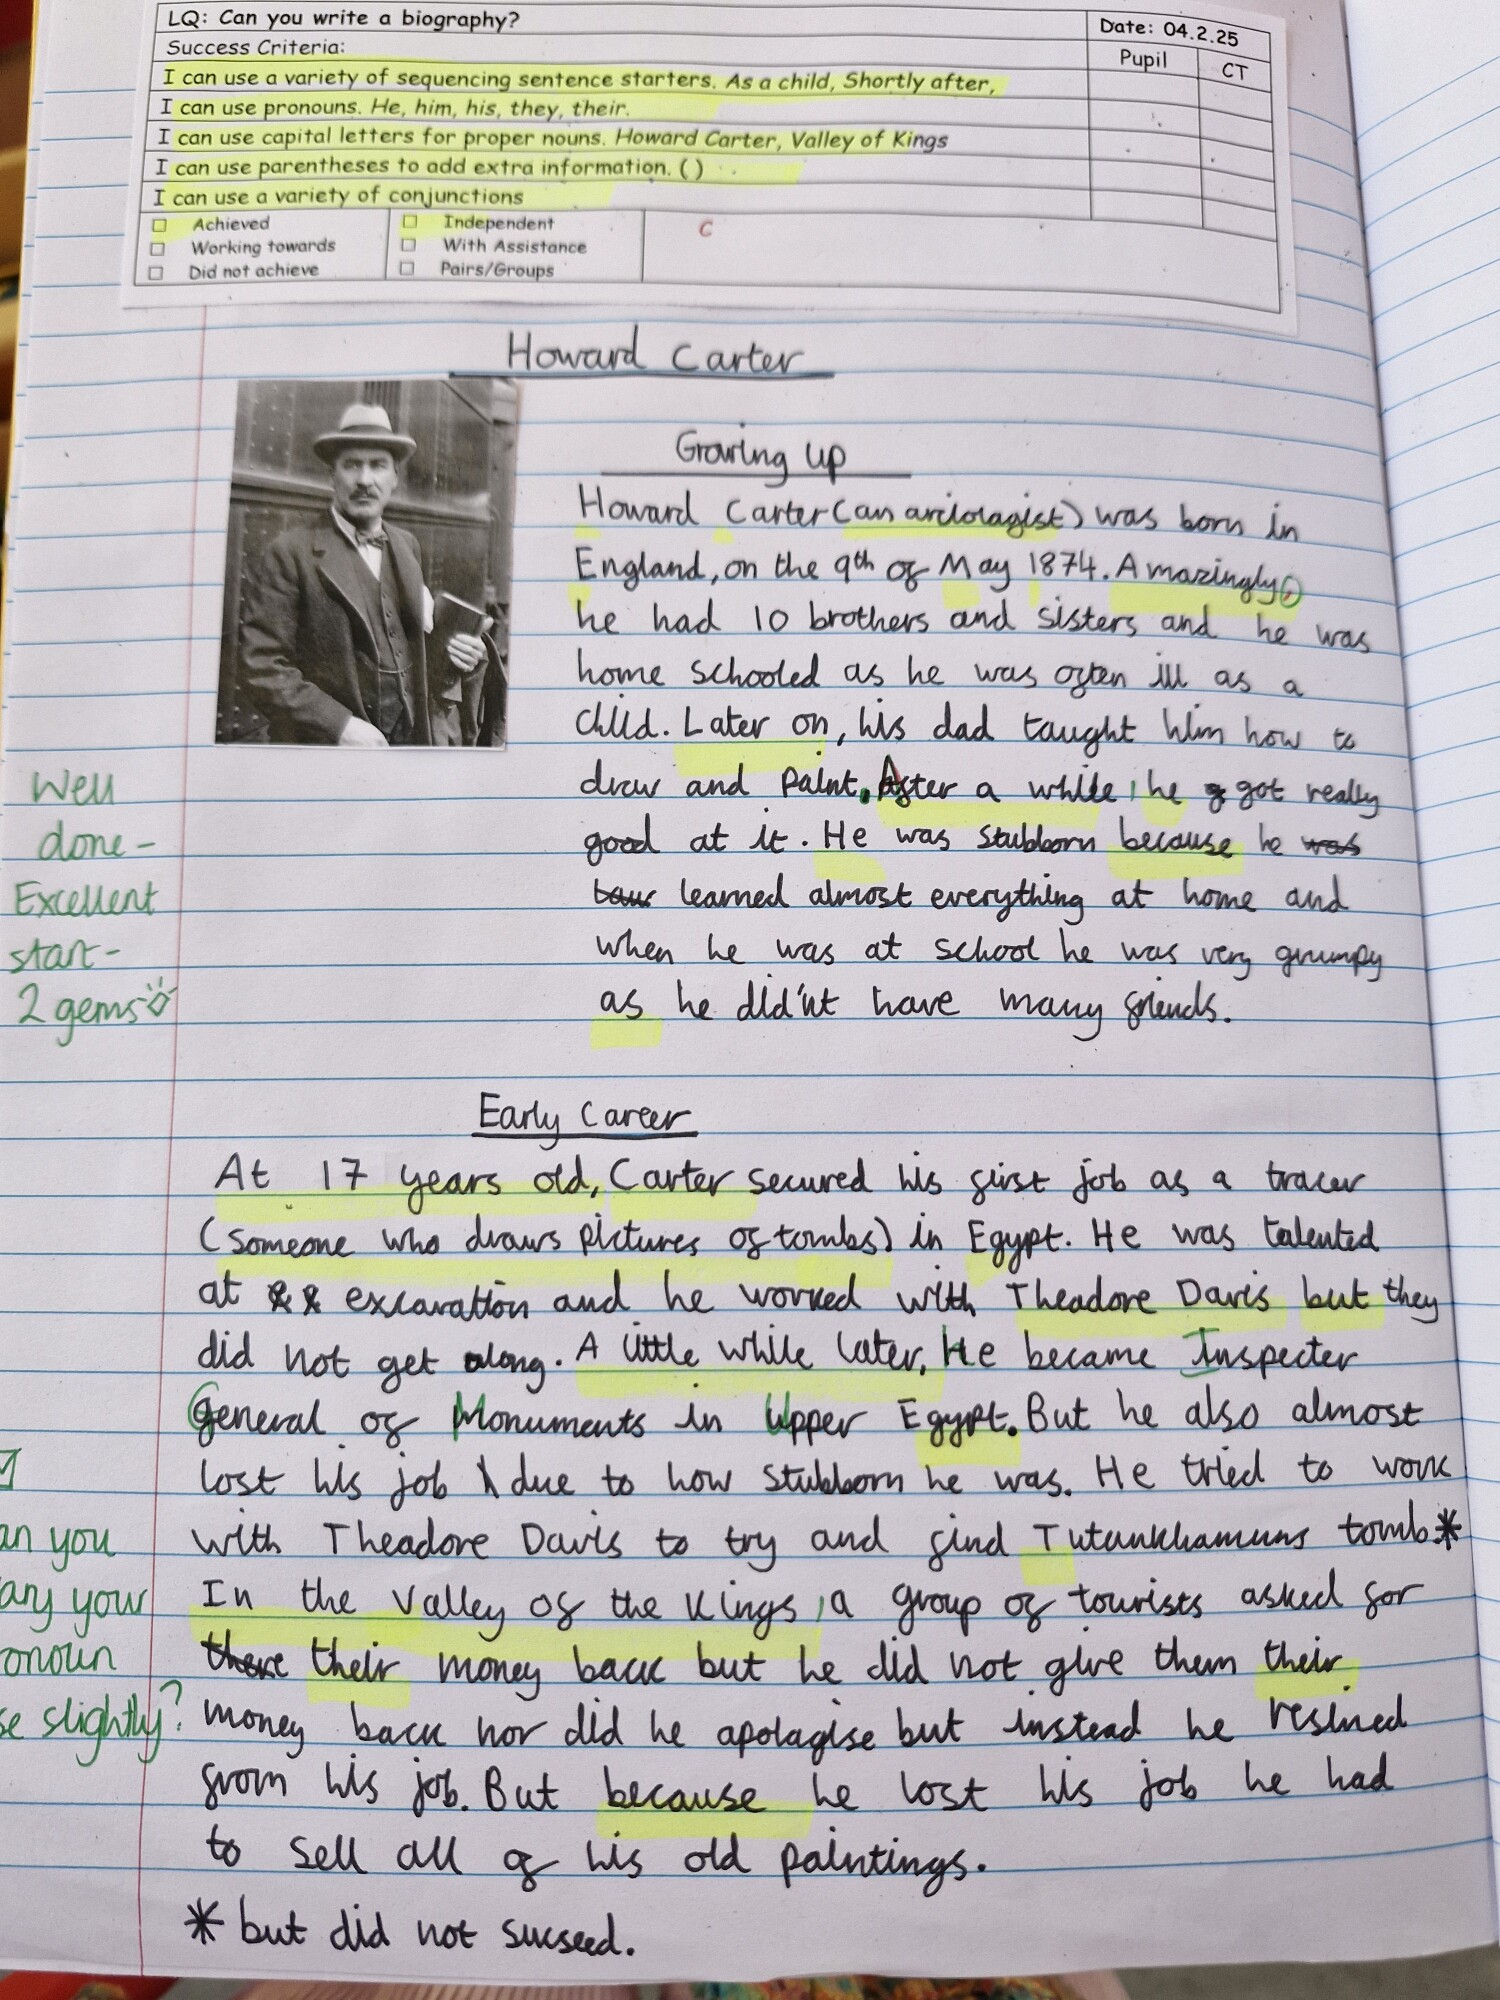 LQ: Can you write a biography?
Date: 04.2.25
Success Criteria:
Pupil
CT
I can use a variety of sequencing sentence starters. As a child, Shortly after,
I can use pronouns. He, him, his, they, their.
I can use capital letters for proper nouns. Howard Carter, Valley of Kings
I can use parentheses to add extra information. ( )
I can use a variety of conjunctions
Achieved
Independent
C
Working towards
With Assistance
Did not achieve
Pairs/Groups
Howard Carter
Growing up
Howard Carter (an arclologist) was born in
England, on the 9th of May 1874. Amazingly,
he had 10 brothers and sisters and he was
home schooled as he was often ill as a
child. Later on, his dad taught him how to
draw and paint. After a while, he got really
good at it. He was stubborn because he was
learned almost everything at home and
when he was at school he was very grumpy
as he did'nt have many friends.
Well
done -
Excellent
start -
2 gems
Early Career
At 17 years old, Carter secured his first job as a tracer
(someone who draws pictures of tombs) in Egypt. He was talented
at excavation and he worked with Theadore Davis but they
did not get along. A little while later, He became Inspecter
General of Monuments in Upper Egypt. But he also almost
lost his job due to how stubborn he was. He tried to work
with Theadore Davis to try and find Tutankhamuns tomb*
In the Valley of the Kings, a group of tourists asked for
there their money back but he did not give them their
money back nor did he apolagise but instead he resined
from his job. But because he lost his job he had
to sell all of his old paintings.
* but did not sucseed.
an you
ary your
onoun
se slightly?